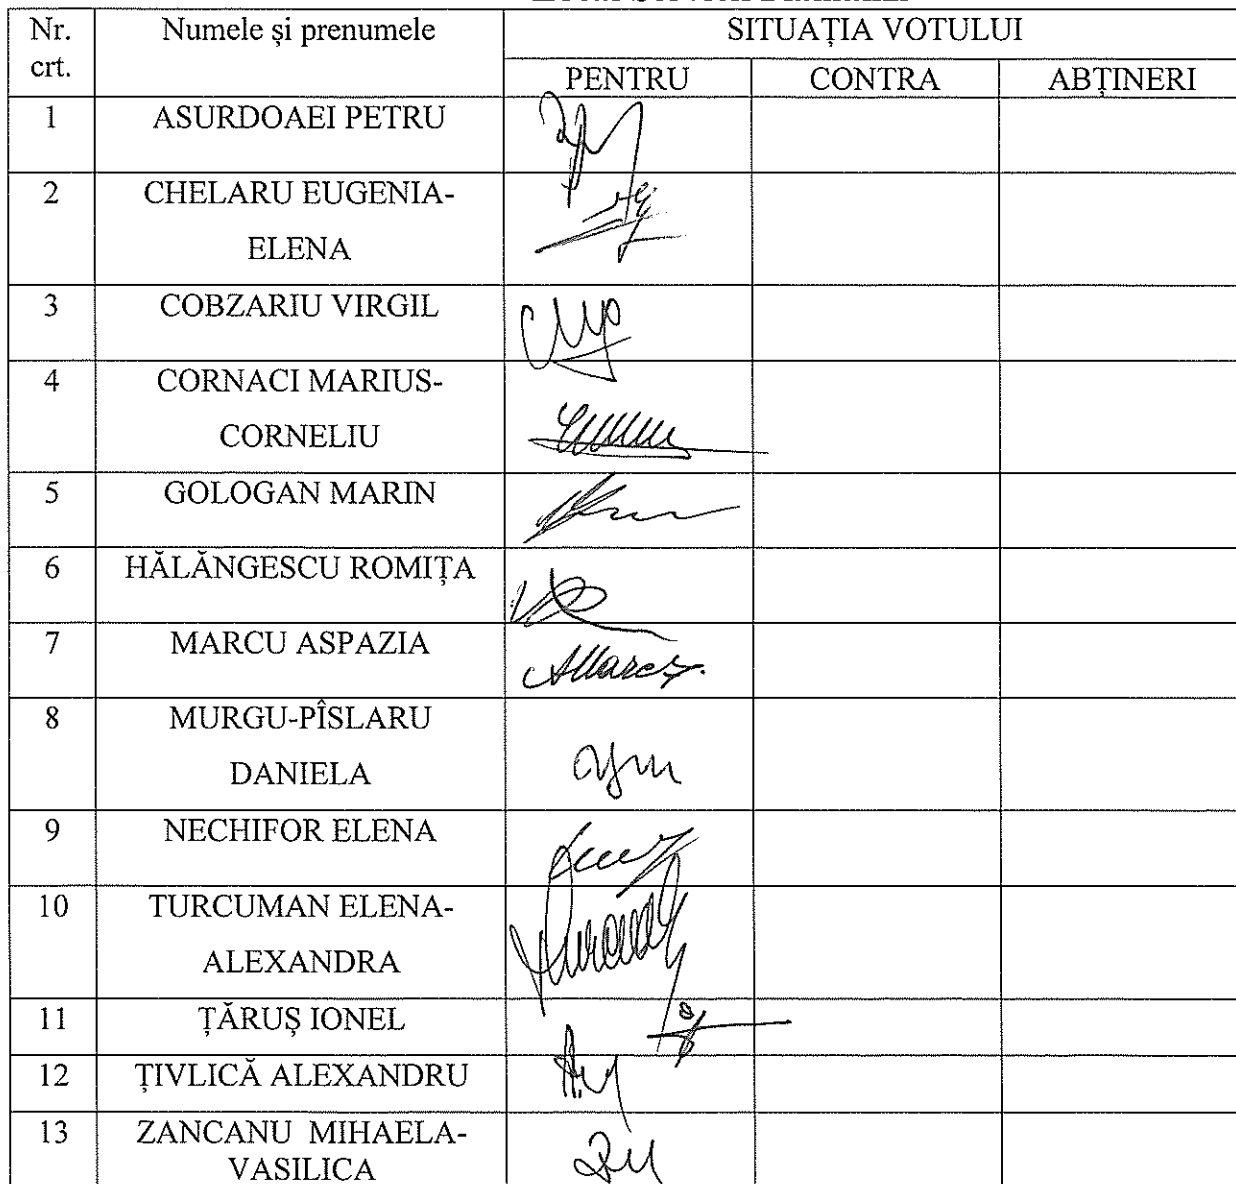 Nr.
crt.
Numele și prenumele
SITUAȚIA VOTULUI
PENTRU
CONTRA
ABȚINERI
1
ASURDOAEI PETRU
2
CHELARU EUGENIA-
ELENA
3
COBZARIU VIRGIL
4
CORNACI MARIUS-
CORNELIU
5
GOLOGAN MARIN
6
HĂLĂNGESCU ROMIȚA
7
MARCU ASPAZIA
8
MURGU-PÎSLARU
DANIELA
9
NECHIFOR ELENA
10
TURCUMAN ELENA-
ALEXANDRA
11
ȚĂRUȘ IONEL
12
ȚIVLICĂ ALEXANDRU
13
ZANCANU MIHAELA-
VASILICA